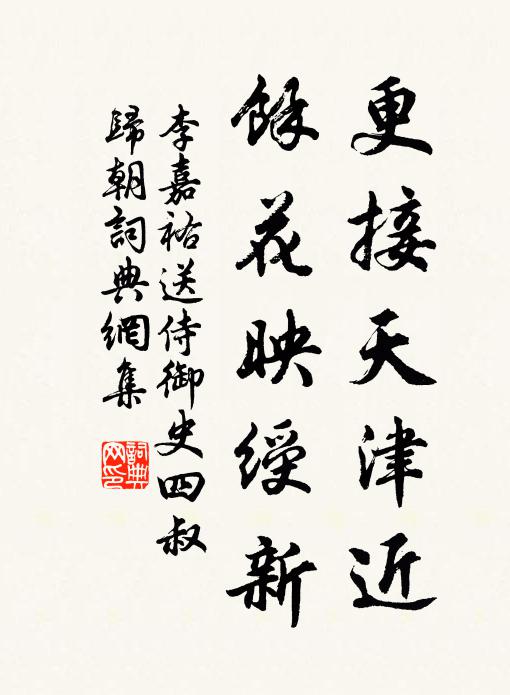 更接天津近
餘花映綬新
李嘉祐送侍御史四叔
歸朝詞典網集
詞典網印